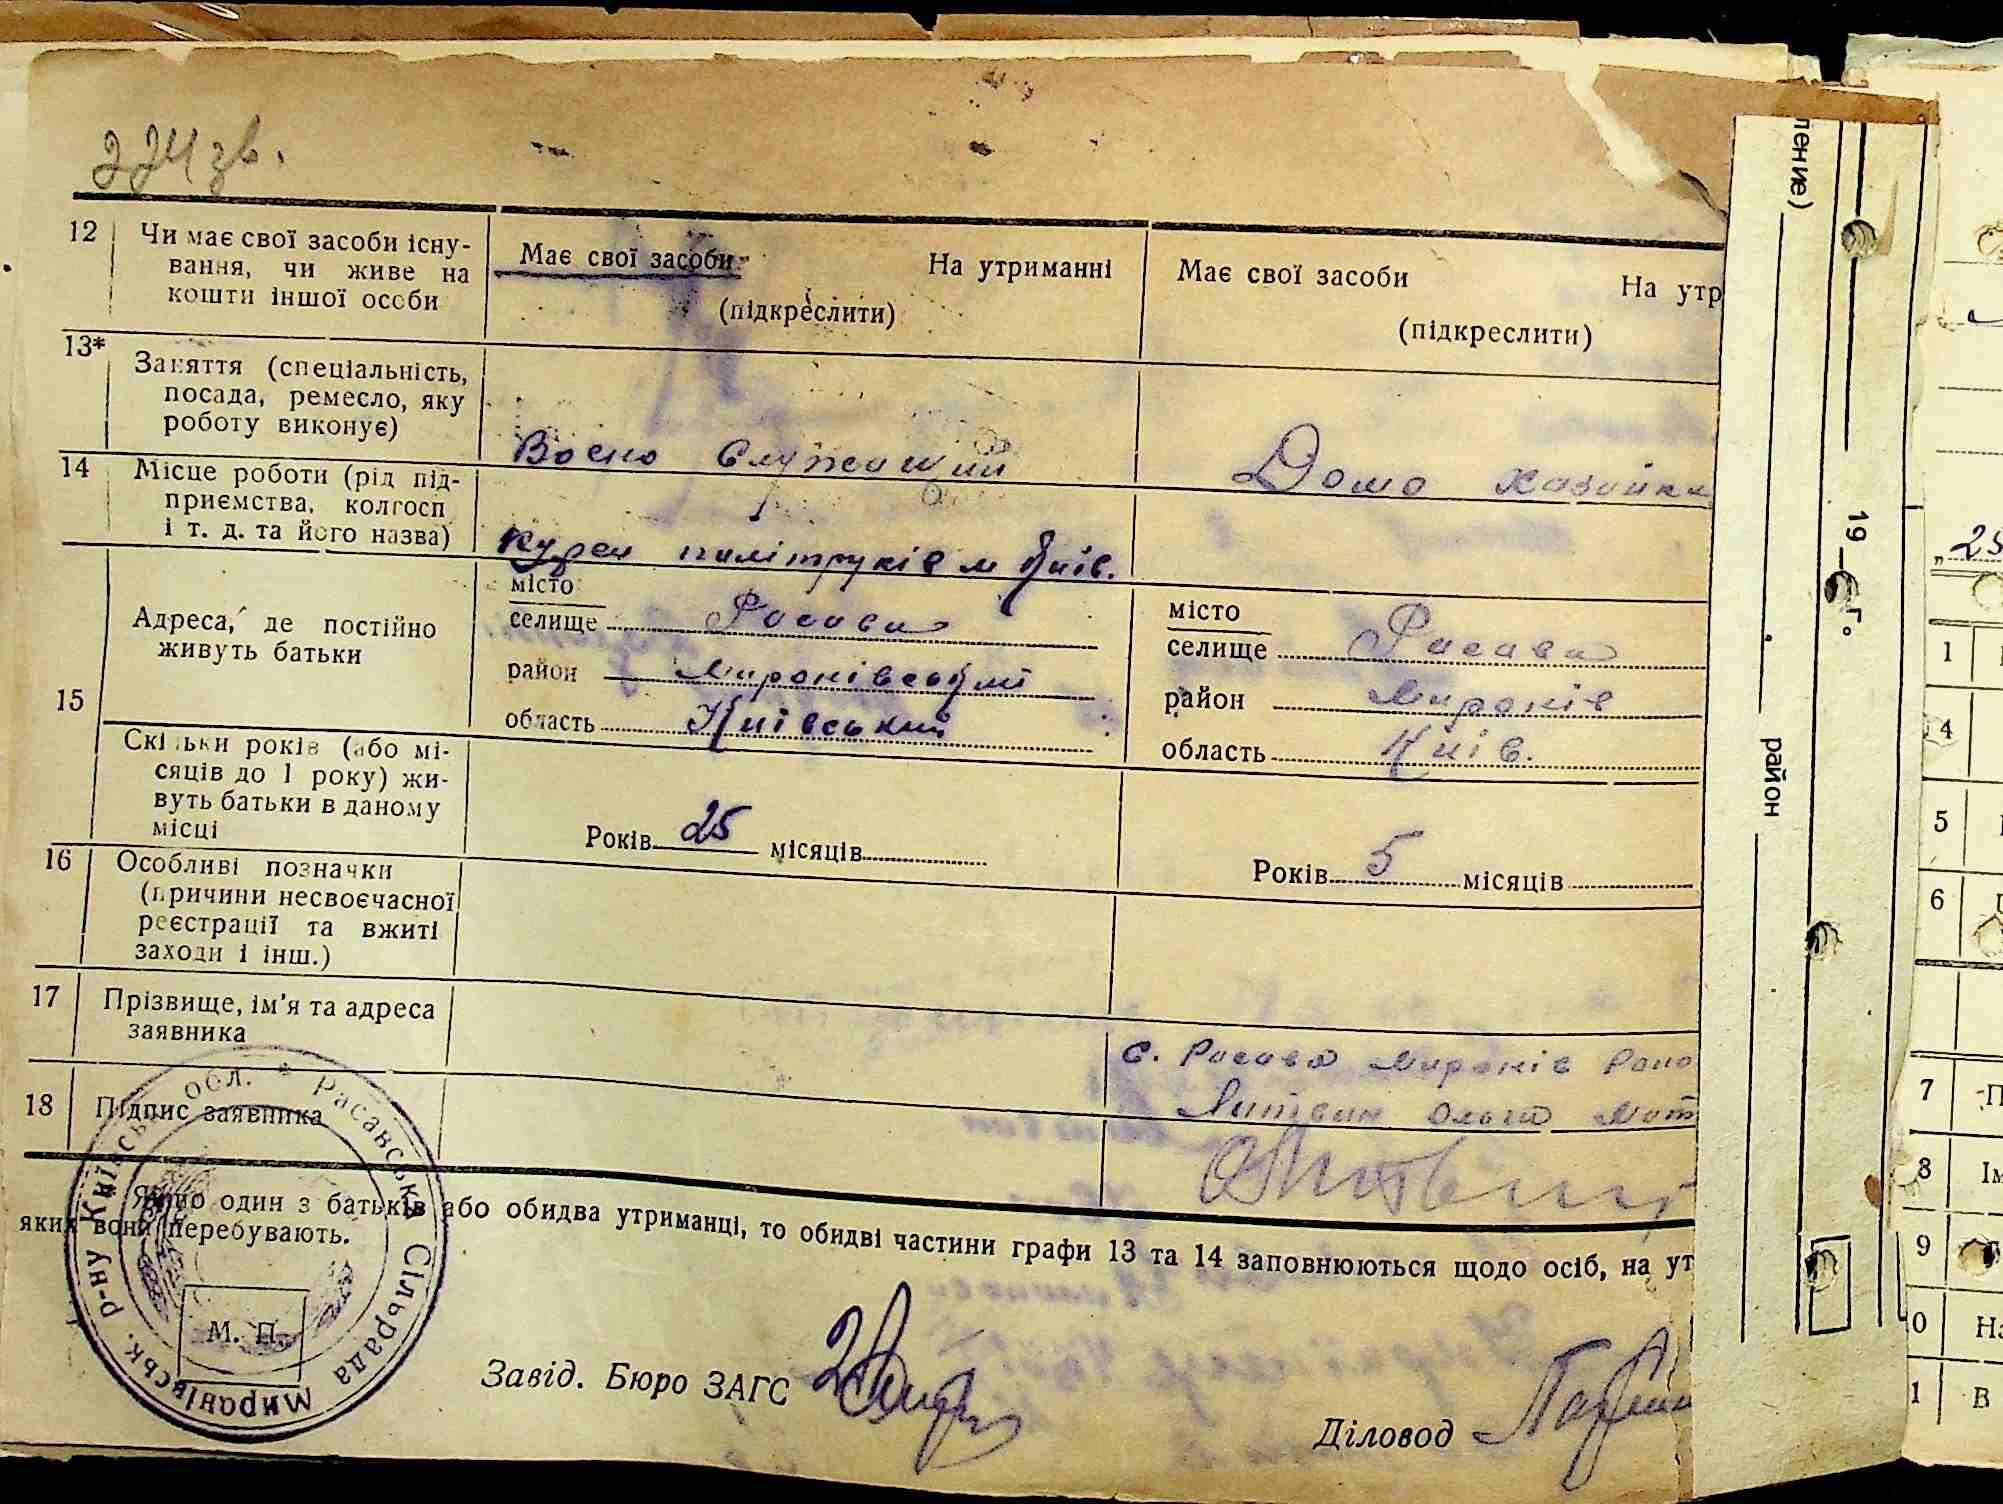 224 зв.
12 Чи має свої засоби існу-
вання, чи живе на
кошти іншої особи
Має свої засоби На утриманні
(підкреслити)
Має свої засоби На утр
(підкреслити)
13* Заняття (спеціальність,
посада, ремесло, яку
роботу виконує)
Воєно Служащий
Домо хазайка
14 Місце роботи (рід під-
приємства, колгосп
і т. д. та його назва)
Курси політруків м Київ.
15
Адреса, де постійно
живуть батьки
місто
селище Расава
район Миронівський
область Київський
місто
селище Расава
район Миронів
область Київ.
Скільки років (або мі-
сяців до 1 року) жи-
вуть батьки в даному
місці
Років 25 місяців
Років 5 місяців
16 Особливі позначки
(причини несвоєчасної
реєстрації та вжиті
заходи і інш.)
17 Прізвище, ім'я та адреса
заявника
с. Расава Миронів Райо
Литвин Ольга Мот
18 Підпис заявника
Якщо один з батьків або обидва утриманці, то обидві частини графи 13 та 14 заповнюються щодо осіб, на ут
яких вони перебувають.
Расавська Сільрада Миранівськ. р-ну Київськ. обл.
М. П.
Завід. Бюро ЗАГС
Діловод
ление)
19 г.
район
„25
1
4
5
6
7 П
8 Ім
9
0 На
1 В